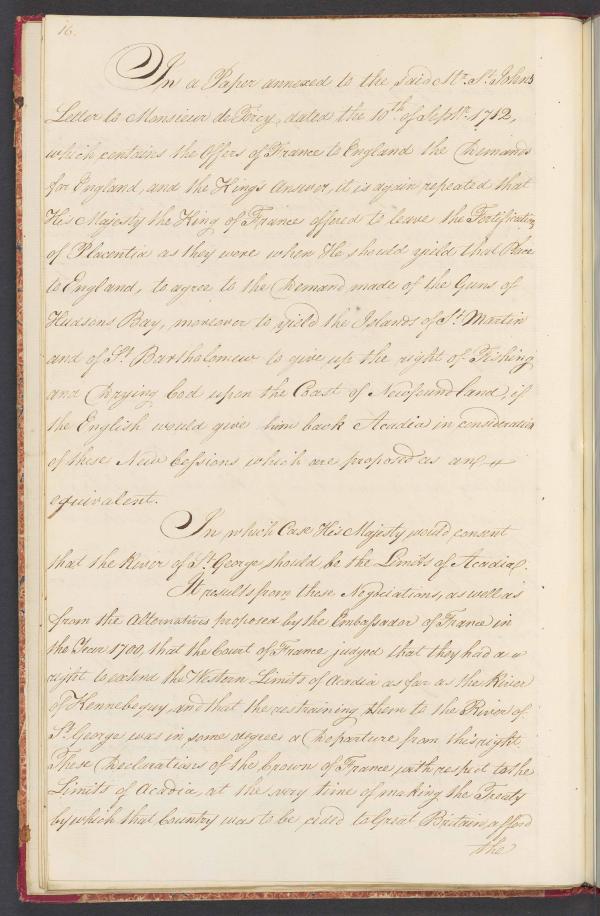 16.
In a Paper annexed to the said Mr. St. Johns
Letter to Monsieur de Torcy, dated the 10th. of Septr. 1712,
which contains the Offers of France to England the Demands
for England, and the Kings Answer, it is again repeated that
His Majesty the King of France offered to leave the Fortifications
of Placentia as they were when He should yield that Place
to England, to agree to the Demand made of the Guns of
Hudsons Bay, moreover to yield the Islands of St. Martin
and of St. Bartholomew to give up the right of Fishing
and Drying Cod upon the Coast of Newfoundland, if
the English would give him back Acadia in consideration
of these New Cessions which are proposed as an
equivalent.
In which Case His Majesty would consent
that the River of St. George should be the Limits of Acadia.
It results from these Negociations, as well as
from the Alternatives proposed by the Embassador of France in
the Year 1700, that the Court of France judged that they had a
right to extend the Western Limits of Acadia as far as the River
of Kennebequy, and that the restraining them to the River of
St. George was in some degree a Departure from this right.
These Declarations of the Crown of France, with respect to the
Limits of Acadia, at the very time of making the Treaty
by which that Country was to be ceded to Great Britain, afford
the